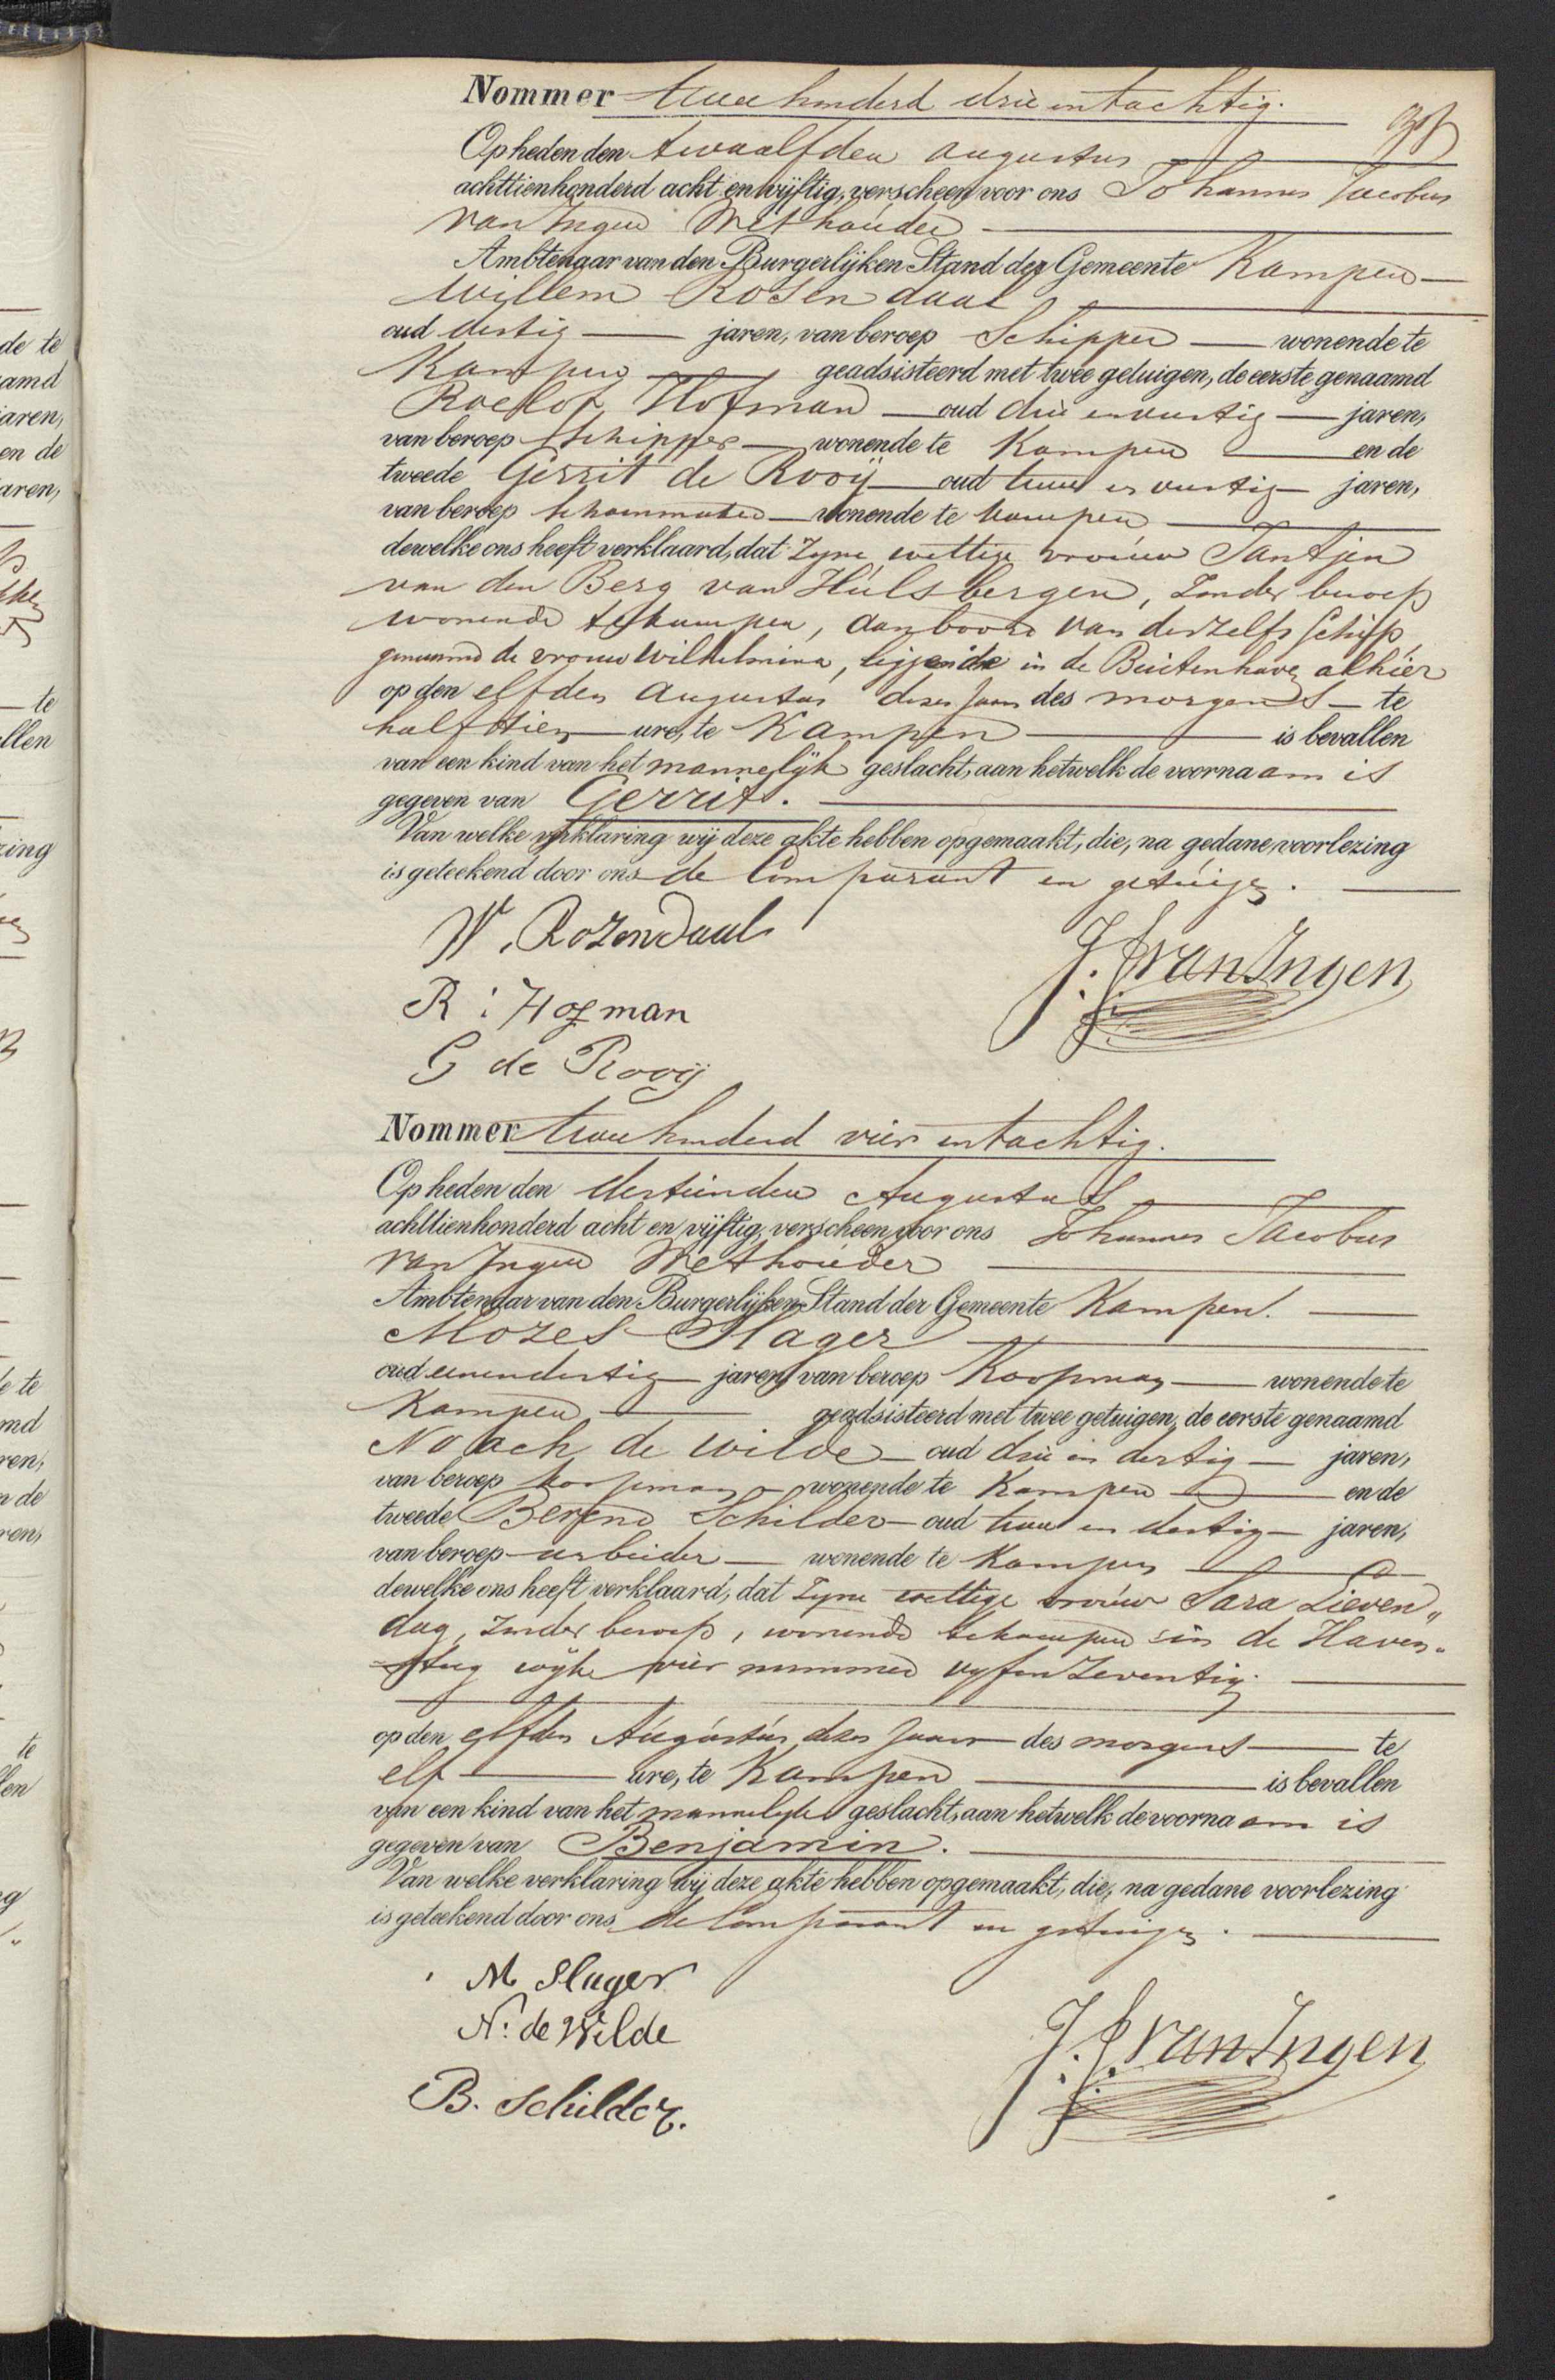 Nommer twee honderd drie en tachtig.
Op heden den twaalfden augustus
achttienhonderd acht en vijftig, verscheen voor ons Johannes Jacobus
van Ingen Wethouder
Ambtenaar van den Burgerlijken Stand der Gemeente Kampen
Willem Rosendaal
oud dertig jaren, van beroep Schipper wonende te
Kampen geadsisteerd met twee getuigen, de eerste genaamd
Roelof Hofman oud drie en veertig jaren,
van beroep Schipper wonende te Kampen en de
tweede Gerrit de Rooij oud twee en veertig jaren,
van beroep wonende te Kampen
dewelke ons heeft verklaard, dat zyne wettige vrouw Jantjen
van den Berg van Hulsbergen, zonder beroep
wonende te Kampen, aan boord van deszelfs schip
genaamd de vrouw Wilhelmina, liggende in de Buitenhaven alhier
op den elfden Augustus dezes Jaars des morgens te
half tien ure, te Kampen is bevallen
van een kind van het mannelijk geslacht, aan hetwelk de voornaam is
gegeven van Gerrit.
Van welke verklaring wij deze akte hebben opgemaakt, die, na gedane voorlezing
is geteekend door ons de Comparant en getuigen.
W. Rozendaal
J. J. van Ingen
R: Hofman
G de Rooij
Nommer twee honderd vier en tachtig.
Op heden den dertienden Augustus
achttienhonderd acht en vijftig, verscheen voor ons Johannes Jacobus
van Ingen Wethouder
Ambtenaar van den Burgerlijken Stand der Gemeente Kampen.
Mozes Slager
oud eenendertig jaren, van beroep Koopman wonende te
Kampen geadsisteerd met twee getuigen, de eerste genaamd
Noach de Wilde oud drie en dertig jaren,
van beroep koopman wonende te Kampen en de
tweede Berend Schilder oud twee en dertig jaren,
van beroep arbeider wonende te Kampen
dewelke ons heeft verklaard, dat zyne wettige vrouw Sara Lieven„
dag, zonder beroep, wonende te Kampen in de Haven„
steeg wyke vier nummer vyf en Zeventig.
op den elfden Augustus dezes Jaars des morgens te
elf ure, te Kampen is bevallen
van een kind van het mannelyke geslacht, aan hetwelk de voornaam is
gegeven van Benjamin.
Van welke verklaring wij deze akte hebben opgemaakt, die, na gedane voorlezing
is geteekend door ons de Comparant en getuigen.
M Slager
N: de Wilde
J. J. van Ingen
B. Schilder.